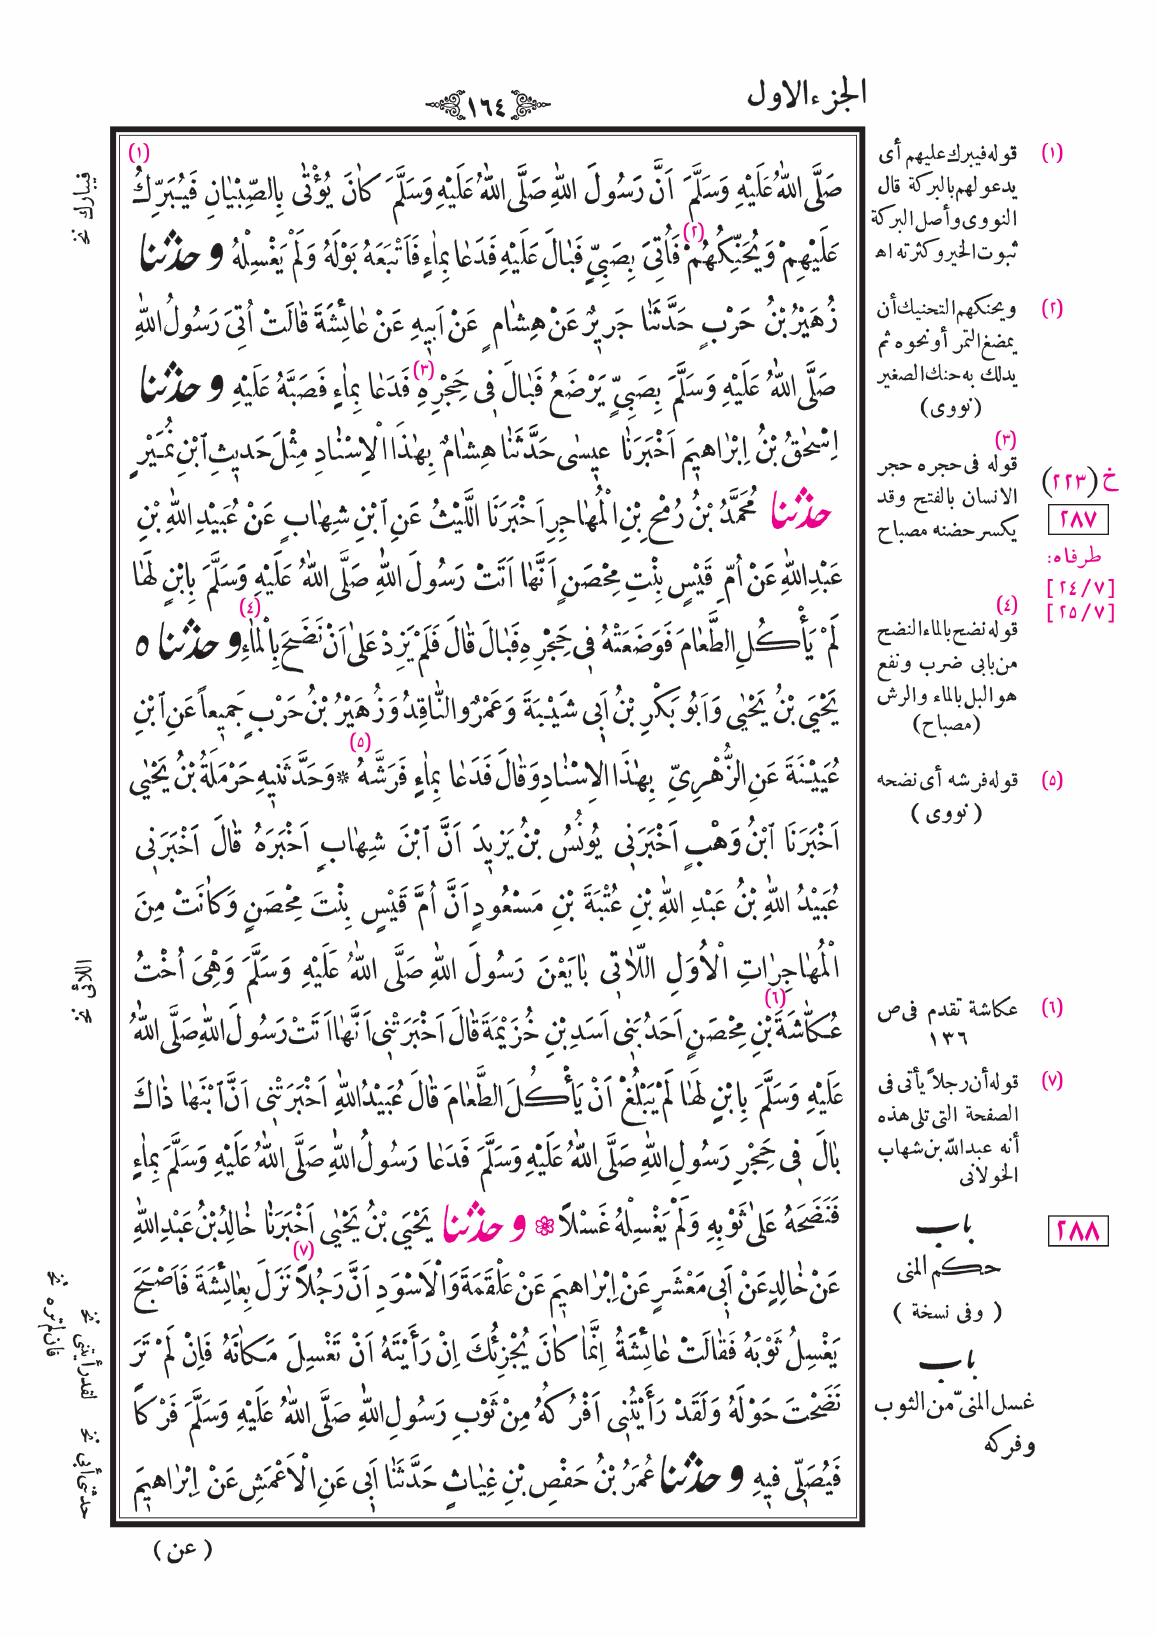 الجزء الاول
١٦٤
صَلَّى اللّٰهُ عَلَيْهِ وَسَلَّمَ اَنَّ رَسُولَ اللّٰهِ صَلَّى اللّٰهُ عَلَيْهِ وَسَلَّمَ كَانَ يُؤْتٰى بِالصِّبْيَانِ فَيُبَرِّكُ (١)
عَلَيْهِمْ وَيُحَنِّكُهُمْ (٢) فَاُتِىَ بِصَبِىٍّ فَبَالَ عَلَيْهِ فَدَعَا بِمَاءٍ فَاَتْبَعَهُ بَوْلَهُ وَلَمْ يَغْسِلْهُ و حدثنا
زُهَيْرُ بْنُ حَرْبٍ حَدَّثَنَا جَرِيرٌ عَنْ هِشَامٍ عَنْ اَبِيهِ عَنْ عَائِشَةَ قَالَتْ اُتِىَ رَسُولُ اللّٰهِ
صَلَّى اللّٰهُ عَلَيْهِ وَسَلَّمَ بِصَبِىٍّ يَرْضَعُ فَبَالَ فِى حَجْرِهِ (٣) فَدَعَا بِمَاءٍ فَصَبَّهُ عَلَيْهِ و حدثنا
اِسْحٰقُ بْنُ اِبْرَاهِيمَ اَخْبَرَنَا عِيسٰى حَدَّثَنَا هِشَامٌ بِهٰذَا الْاِسْنَادِ مِثْلَ حَدِيثِ ابْنِ نُمَيْرٍ
حدثنا مُحَمَّدُ بْنُ رُمْحِ بْنِ الْمُهَاجِرِ اَخْبَرَنَا اللَّيْثُ عَنِ ابْنِ شِهَابٍ عَنْ عُبَيْدِ اللّٰهِ بْنِ
عَبْدِ اللّٰهِ عَنْ اُمِّ قَيْسٍ بِنْتِ مِحْصَنٍ اَنَّهَا اَتَتْ رَسُولَ اللّٰهِ صَلَّى اللّٰهُ عَلَيْهِ وَسَلَّمَ بِابْنٍ لَهَا
لَمْ يَأْكُلِ الطَّعَامَ فَوَضَعَتْهُ فِى حَجْرِهِ فَبَالَ قَالَ فَلَمْ يَزِدْ عَلٰى اَنْ نَضَحَ بِالْمَاءِ (٤) و حدثنا ٥
يَحْيَى بْنُ يَحْيٰى وَاَبُو بَكْرِ بْنُ اَبِى شَيْبَةَ وَعَمْرٌو النَّاقِدُ وَزُهَيْرُ بْنُ حَرْبٍ جَمِيعاً عَنِ ابْنِ
عُيَيْنَةَ عَنِ الزُّهْرِىِّ بِهٰذَا الاِسْنَادِ وَقَالَ فَدَعَا بِمَاءٍ فَرَشَّهُ (٥) * وَحَدَّثَنِيهِ حَرْمَلَةُ بْنُ يَحْيٰى
اَخْبَرَنَا ابْنُ وَهْبٍ اَخْبَرَنِى يُونُسُ بْنُ يَزِيدَ اَنَّ ابْنَ شِهَابٍ اَخْبَرَهُ قَالَ اَخْبَرَنِى
عُبَيْدُ اللّٰهِ بْنُ عَبْدِ اللّٰهِ بْنِ عُتْبَةَ بْنِ مَسْعُودٍ اَنَّ اُمَّ قَيْسٍ بِنْتَ مِحْصَنٍ وَكَانَتْ مِنَ
الْمُهَاجِرَاتِ الْاُوَلِ اللَّاتِى بَايَعْنَ رَسُولَ اللّٰهِ صَلَّى اللّٰهُ عَلَيْهِ وَسَلَّمَ وَهِىَ اُخْتُ
عُكَّاشَةَ (٦) بْنِ مِحْصَنٍ اَحَدُ بَنِى اَسَدِ بْنِ خُزَيْمَةَ قَالَ اَخْبَرَتْنِى اَنَّهَا اَتَتْ رَسُولَ اللّٰهِ صَلَّى اللّٰهُ
عَلَيْهِ وَسَلَّمَ بِابْنٍ لَهَا لَمْ يَبْلُغْ اَنْ يَأْكُلَ الطَّعَامَ قَالَ عُبَيْدُ اللّٰهِ اَخْبَرَتْنِى اَنَّ ابْنَهَا ذَاكَ
بَالَ فِى حَجْرِ رَسُولِ اللّٰهِ صَلَّى اللّٰهُ عَلَيْهِ وَسَلَّمَ فَدَعَا رَسُولُ اللّٰهِ صَلَّى اللّٰهُ عَلَيْهِ وَسَلَّمَ بِمَاءٍ
فَنَضَحَهُ عَلٰى ثَوْبِهِ وَلَمْ يَغْسِلْهُ غَسْلاً ❁ و حدثنا يَحْيَى بْنُ يَحْيٰى اَخْبَرَنَا خَالِدُ بْنُ عَبْدِ اللّٰهِ
عَنْ خَالِدٍ عَنْ اَبِى مَعْشَرٍ عَنْ اِبْرَاهِيمَ عَنْ عَلْقَمَةَ وَالْاَسْوَدِ اَنَّ رَجُلاً (٧) نَزَلَ بِعَائِشَةَ فَاَصْبَحَ
يَغْسِلُ ثَوْبَهُ فَقَالَتْ عَائِشَةُ اِنَّمَا كَانَ يُجْزِئُكَ اِنْ رَأَيْتَهُ اَنْ تَغْسِلَ مَكَانَهُ فَاِنْ لَمْ تَرَ
نَضَحْتَ حَوْلَهُ وَلَقَدْ رَأَيْتُنِى اَفْرُكُهُ مِنْ ثَوْبِ رَسُولِ اللّٰهِ صَلَّى اللّٰهُ عَلَيْهِ وَسَلَّمَ فَرْكاً
فَيُصَلِّى فِيهِ و حدثنا عُمَرُ بْنُ حَفْصِ بْنِ غِيَاثٍ حَدَّثَنَا اَبِى عَنِ الْاَعْمَشِ عَنْ اِبْرَاهِيمَ
( عن )
(١) قوله فيبرك عليهم أى
يدعو لهم بالبركة قال
النووى وأصل البركة
ثبوت الخير وكثرته اه
(٢) ويحنكهم التحنيك أن
يمضغ التمر أو نحوه ثم
يدلك به حنك الصغير
(نووى)
(٣)
قوله فى حجره حجر
الانسان بالفتح وقد
يكسر حضنه مصباح
خ (٢٢٣)
٢٨٧
طرفاه:
[٢٤/٧]
[٢٥/٧]
(٤)
قوله نضح بالماء النضح
من بابى ضرب ونفع
هو البل بالماء والرش
(مصباح)
(٥) قوله فرشه أى نضحه
(نووى)
(٦) عكاشة تقدم فى ص
١٣٦
(٧) قوله أن رجلاً يأتى فى
الصفحة التى تلى هذه
أنه عبدالله بن شهاب
الخولانى
٢٨٨
باب
حكم المنى
( وفى نسخة )
باب
غسل المنىّ من الثوب
وفركه
فيبارك نخ
اللائى نخ
فان لم تره نخ
لقد رأيتنى نخ
حدثنى أبى نخ